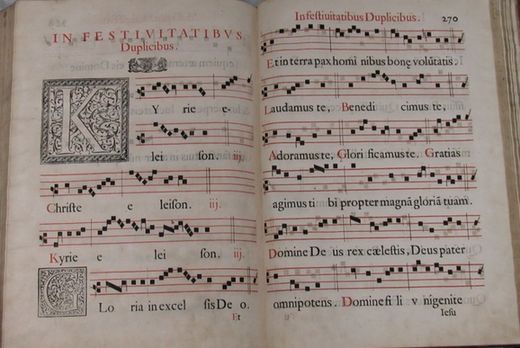 IN FESTIVITATIBVS
Duplicibus.
KYrie e-
lei son. iij.
Christe e leison. iij.
Kyrie e lei son. iij.
GLoria in excel sis De o.
Et
In festiuitatibus Duplicibus. 270
Et in terra pax homi nibus bonę volūtatis.
Laudamus te, Benedi cimus te,
Adoramus te, Glori ficamus te. Gratias
agimus ti bi propter magnā gloriā tuam.
Domine De us rex cælestis, Deus pater
omnipotens. Domine fi li v nigenite
Iesu